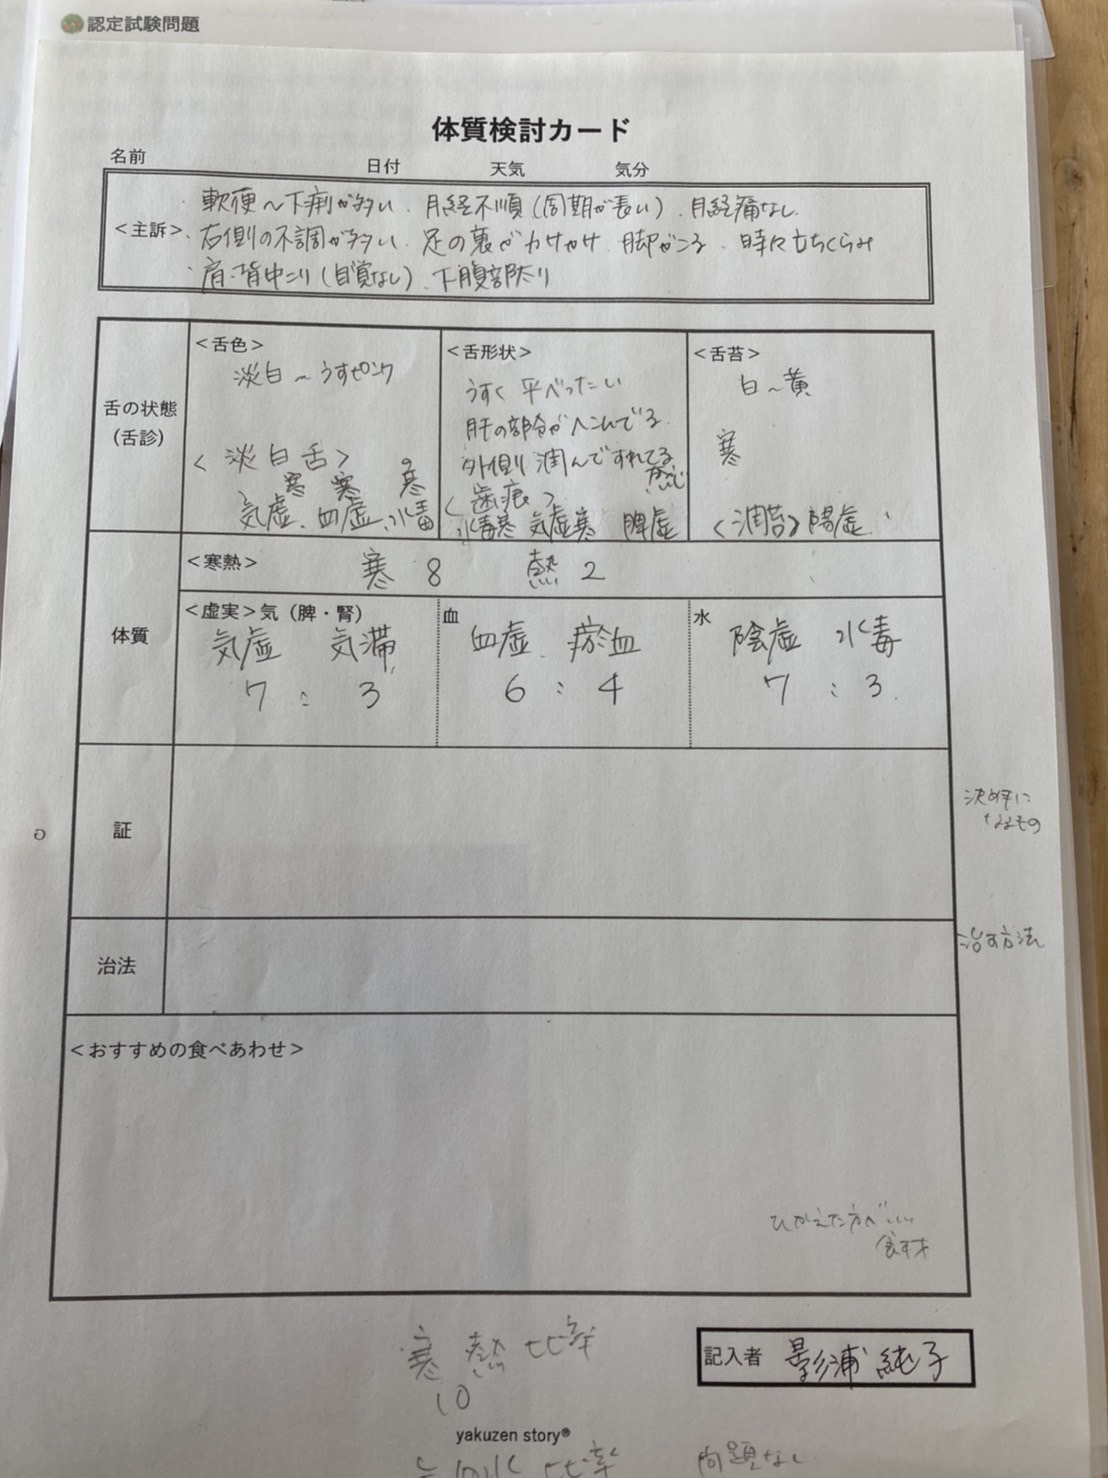 認定試験問題
体質検討カード
名前 日付 天気 気分
<主訴>
・軟便〜下痢が多い、月経不順(周期が長い)、月経痛なし
・右側の不調が多い、足の裏がカサカサ、脚がつる、時々立ちくらみ
・肩・背中こり(自覚なし)、下腹部太り
舌の状態
(舌診)
<舌色>
淡白〜うすピンク
<淡白舌>
寒 寒 寒
気虚、血虚、水毒
<舌形状>
うすく平べったい
肝の部分がへこんでる
外側 潤んですれてる
感じ
<歯痕>
水毒寒 気虚寒 脾虚
<舌苔>
白〜黄
寒
<潤苔>陽虚
体質
<寒熱> 寒 8 熱 2
<虚実>気(脾・腎)
気虚 気滞
7 : 3
血
血虚、瘀血
6 : 4
水
陰虚 水毒
7 : 3
証
決め手に
なるもの
治法
治す方法
<おすすめの食べあわせ>
ひかえた方がいい
食材
寒 熱 比率
10
記入者 影浦 純子
yakuzen story®
気血水 比率 問題なし